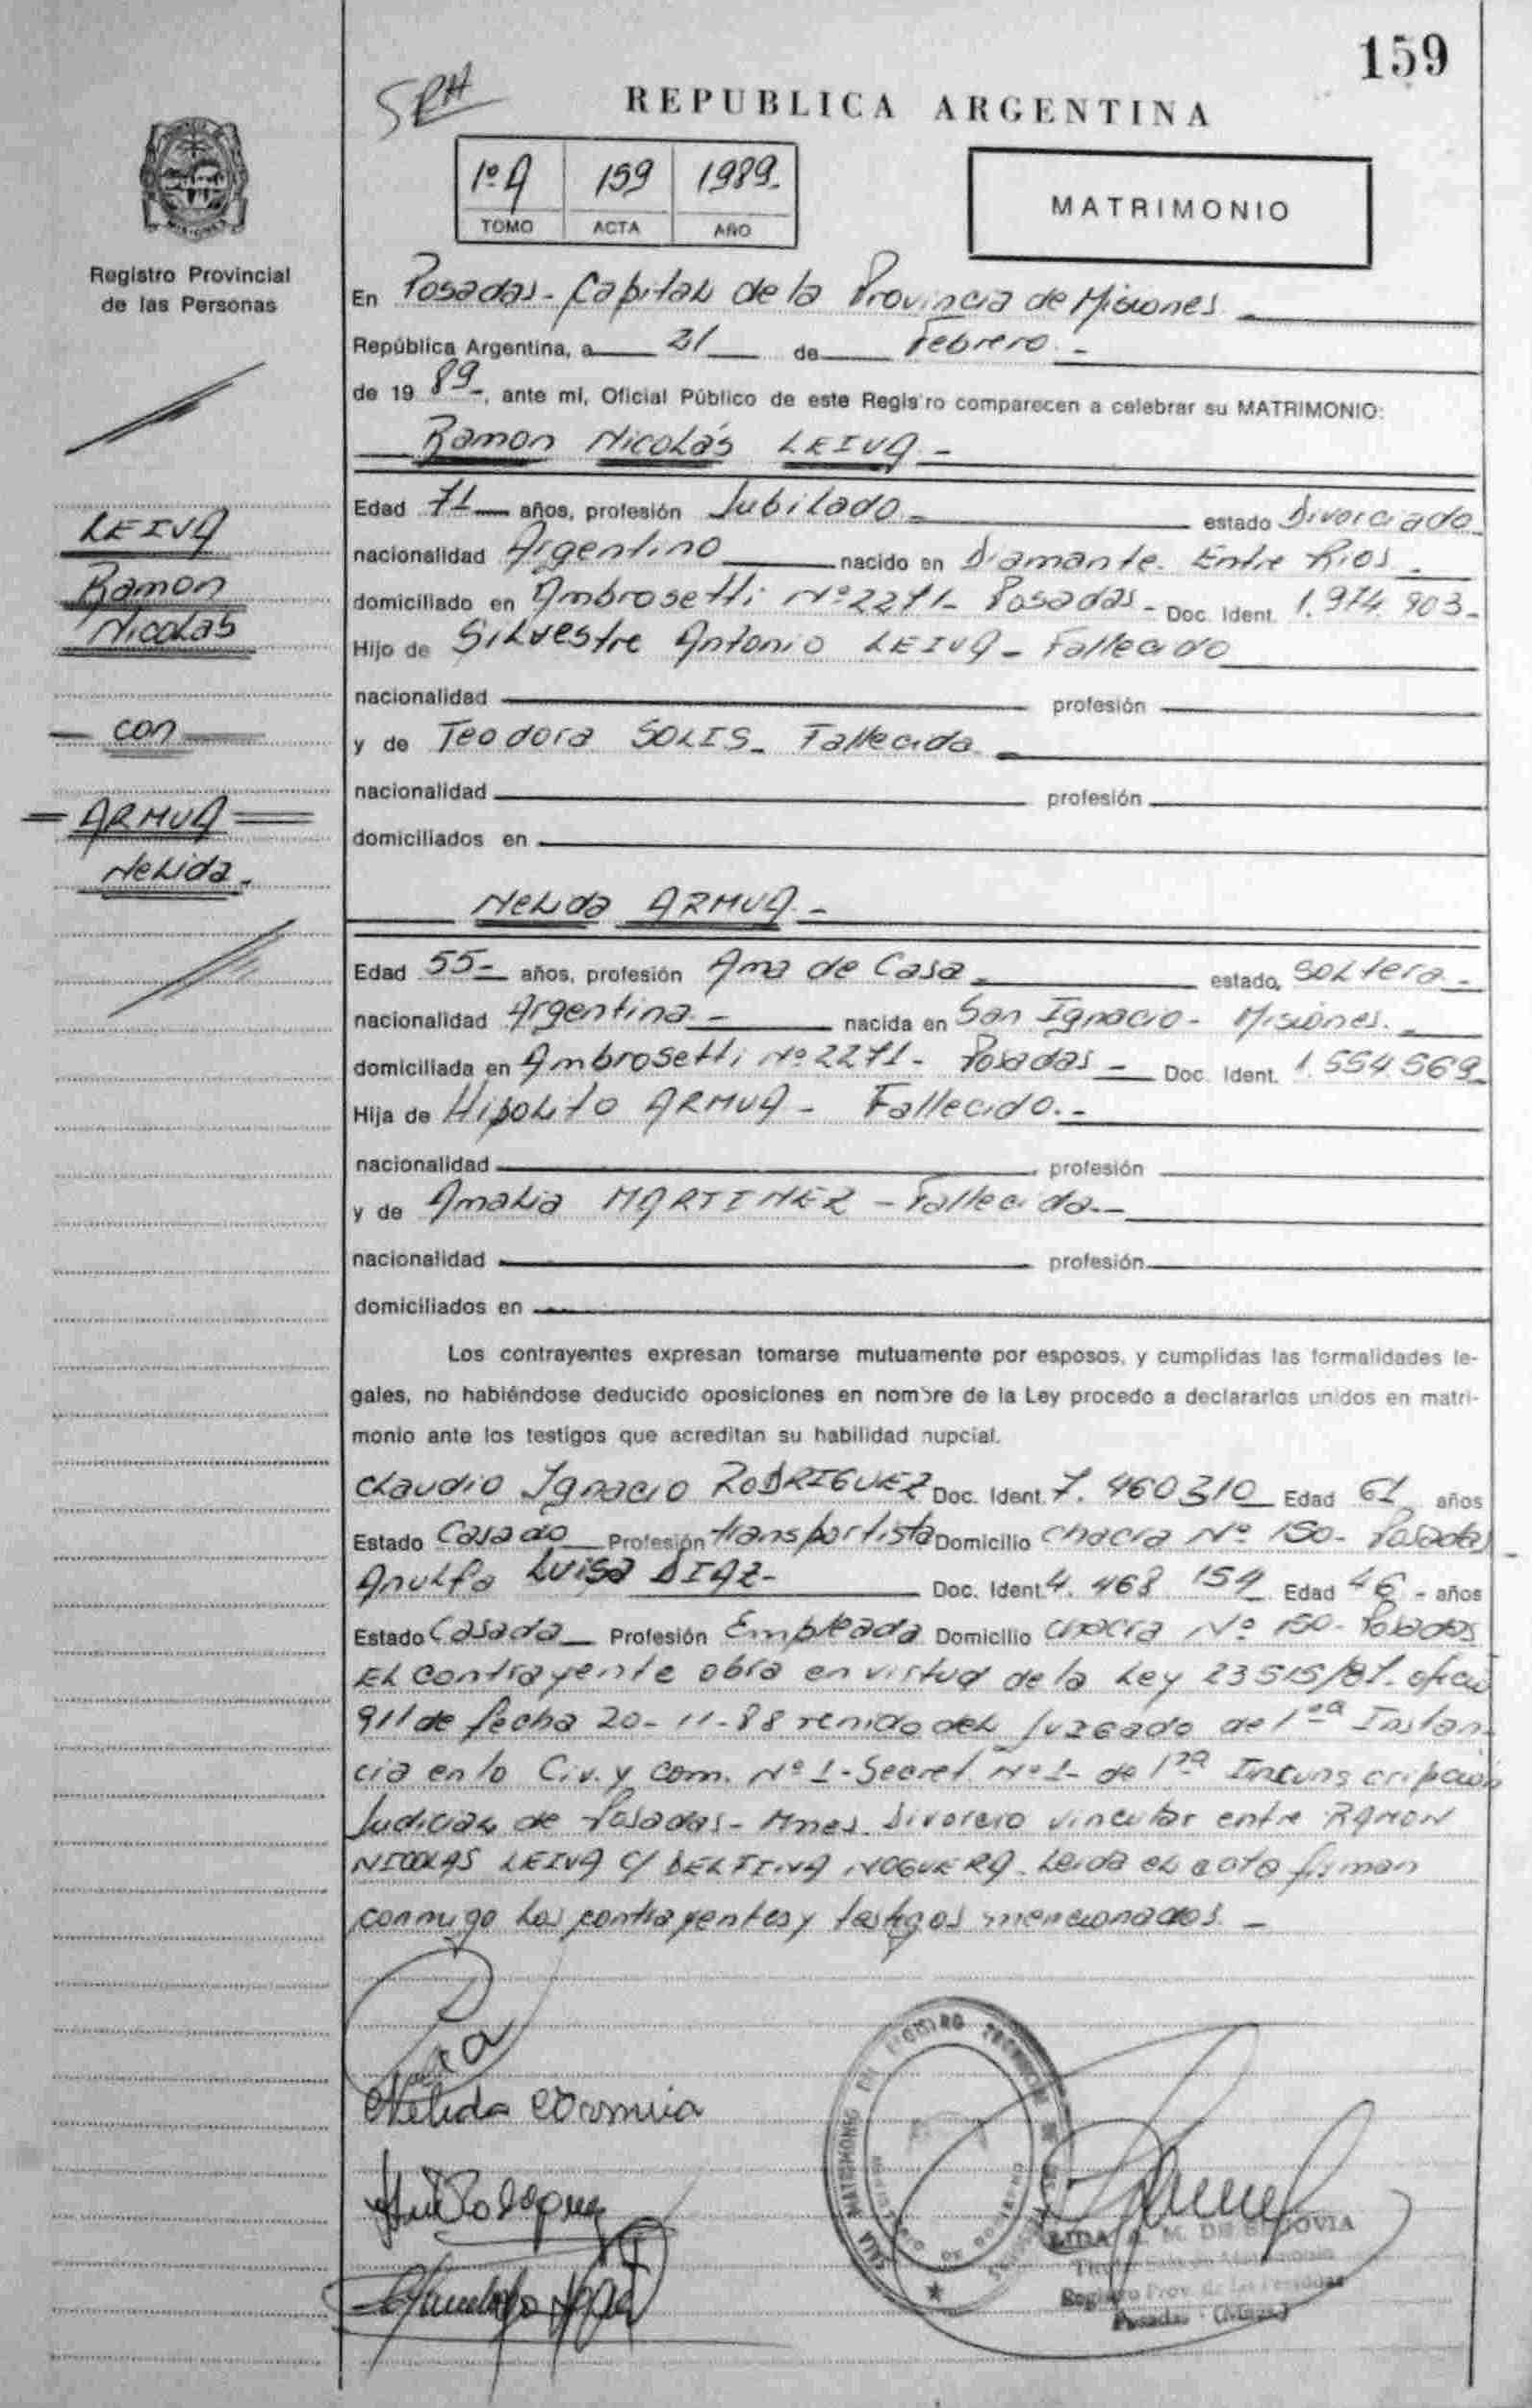 159
SRH
REPUBLICA ARGENTINA
1º A 159 1989.
TOMO ACTA AÑO
MATRIMONIO
MISIONES
Registro Provincial
de las Personas
En Posadas - Capital de la Provincia de Misiones
República Argentina, a 21 de Febrero.-
de 19 89-, ante mí, Oficial Público de este Registro comparecen a celebrar su MATRIMONIO:
Ramon Nicolás LEIVA.-
Edad 71 años, profesión Jubilado estado Divorciado
nacionalidad Argentino nacido en Diamante. Entre Rios.
domiciliado en Ambrosetti Nº 2271- Posadas - Doc. Ident. 1.974.903-
Hijo de Silvestre Antonio LEIVA - Fallecido
nacionalidad profesión
y de Teodora SOLIS - Fallecida
nacionalidad profesión
domiciliados en
LEIVA
Ramon
Nicolas
con
ARMUA
Nelida.
Nelida ARMUA.-
Edad 55- años, profesión Ama de Casa estado, Soltera-
nacionalidad Argentina.- nacida en San Ignacio - Misiones.
domiciliada en Ambrosetti Nº 2271- Posadas - Doc. Ident. 1.554.569
Hija de Hipolito ARMUA - Fallecido.-
nacionalidad profesión
y de Amalia MARTINEZ - Fallecida.-
nacionalidad profesión
domiciliados en
Los contrayentes expresan tomarse mutuamente por esposos, y cumplidas las formalidades le-
gales, no habiéndose deducido oposiciones en nombre de la Ley procedo a declararlos unidos en matri-
monio ante los testigos que acreditan su habilidad nupcial.
Claudio Ignacio RODRIGUEZ Doc. Ident. 7.460310 Edad 61 años
Estado Casado Profesión transportista Domicilio chacra Nº 150- Posadas
Anulfa Luisa DIAZ- Doc. Ident 4.468 154 Edad 46 - años
Estado Casada Profesión Empleada Domicilio chacra Nº 150- Posadas
El contrayente obra en virtud de la Ley 23515/87- oficio
911 de fecha 20-11-88 venido del Juzgado de 1ra Instan-
cia en lo Civ. y Com. Nº 1 - Secret. Nº 1- de 1ra
Judicial de Posadas - Mnes. Divorcio vincular entre RAMON
NICOLAS LEIVA C/ DELFINA NOGUERA. Leida el acta firman
conmigo los contrayentes y testigos mencionados.-
Nelida Armua
SALA MATRIMONIOS
LIDA M. DE SEGOVIA
Registro Prov. de las Personas
Posadas - (Mnes.)